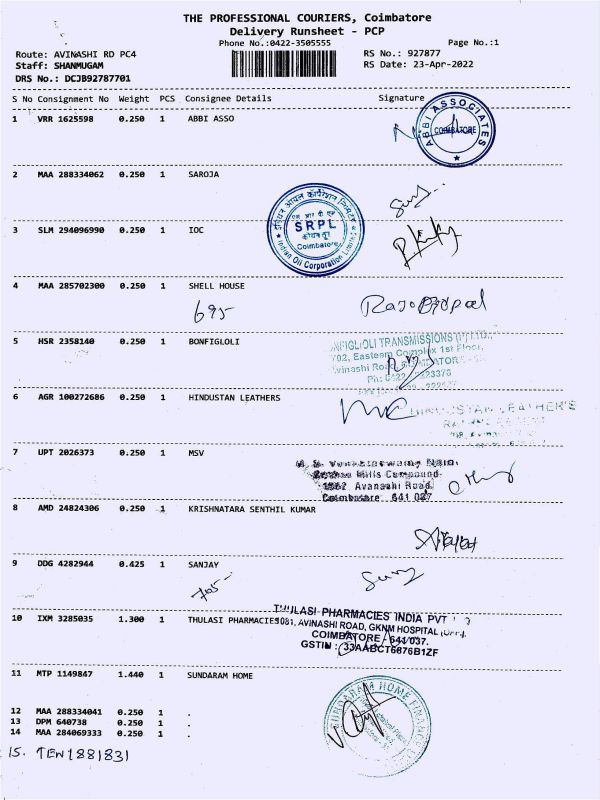 THE PROFESSIONAL COURIERS, Coimbatore
Delivery Runsheet - PCP
Phone No.:0422-3505555
Page No.:1
Route: AVINASHI RD PC4
RS No.: 927877
Staff: SHANMUGAM
RS Date: 23-Apr-2022
DRS No.: DCJB92787701
S No Consignment No Weight PCS Consignee Details Signature
1 VRR 1625598 0.250 1 ABBI ASSO
ABBI ASSOCIATES
COIMBATORE
2 MAA 288334062 0.250 1 SAROJA
3 SLM 294096990 0.250 1 IOC
SRPL
Coimbatore
Indian Oil Corporation Limited
4 MAA 285702300 0.250 1 SHELL HOUSE
695
5 HSR 2358140 0.250 1 BONFIGLOLI
NFIGLIOLI TRANSMISSIONS (P) LTD.,
702, Eastern Complex 1st Floor,
6 AGR 100272686 0.250 1 HINDUSTAN LEATHERS
HINDUSTAN LEATHER'S
7 UPT 2026373 0.250 1 MSV
Mills Compound
1062 Avanashi Road
Coimbatore 641 037
8 AMD 24824306 0.250 1 KRISHNATARA SENTHIL KUMAR
9 DDG 4282944 0.425 1 SANJAY
705
10 IXM 3285035 1.300 1 THULASI PHARMACIES
THULASI PHARMACIES INDIA PVT
1081, AVINASHI ROAD, GKNM HOSPITAL
COIMBATORE 641 037.
GSTIN : 33AABCT6876B1ZF
11 MTP 1149847 1.440 1 SUNDARAM HOME
SUNDARAM HOME FINANCE
12 MAA 288334041 0.250 1 .
13 DPM 640738 0.250 1 .
14 MAA 284069333 0.250 1 .
15. TEN 1881831